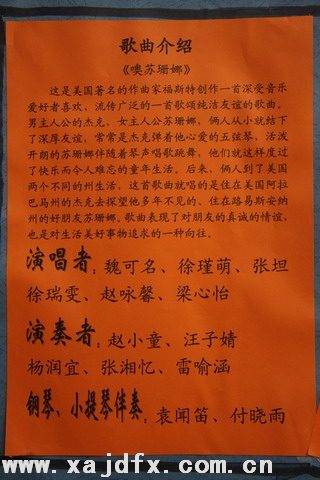 歌曲介绍
《噢苏珊娜》
这是美国著名的作曲家福斯特创作一首深受音乐
爱好者喜欢，流传广泛的一首歌颂纯洁友谊的歌曲。
男主人公的杰克，女主人公苏珊娜，俩人从小就结下
了深厚友谊，常常是杰克弹着他心爱的五弦琴，活泼
开朗的苏珊娜伴随着琴声唱歌跳舞，他们就这样度过
了快乐而令人难忘的童年生活。后来，俩人到了美国
两个不同的州生活，这首歌曲就唱的是住在美国阿拉
巴马州的杰克去探望他多年不见的、住在路易斯安纳
州的好朋友苏珊娜，歌曲表现了对朋友的真诚的情谊，
也是对生活美好事物追求的一种向往。
演唱者：魏可名、徐瑾萌、张坦
徐瑞雯、赵咏馨、梁心怡
演奏者：赵小童、汪子婧
杨润宜、张湘忆、雷喻涵
钢琴、小提琴伴奏：袁闻笛、付晓雨
www.xajdfx.com.cn